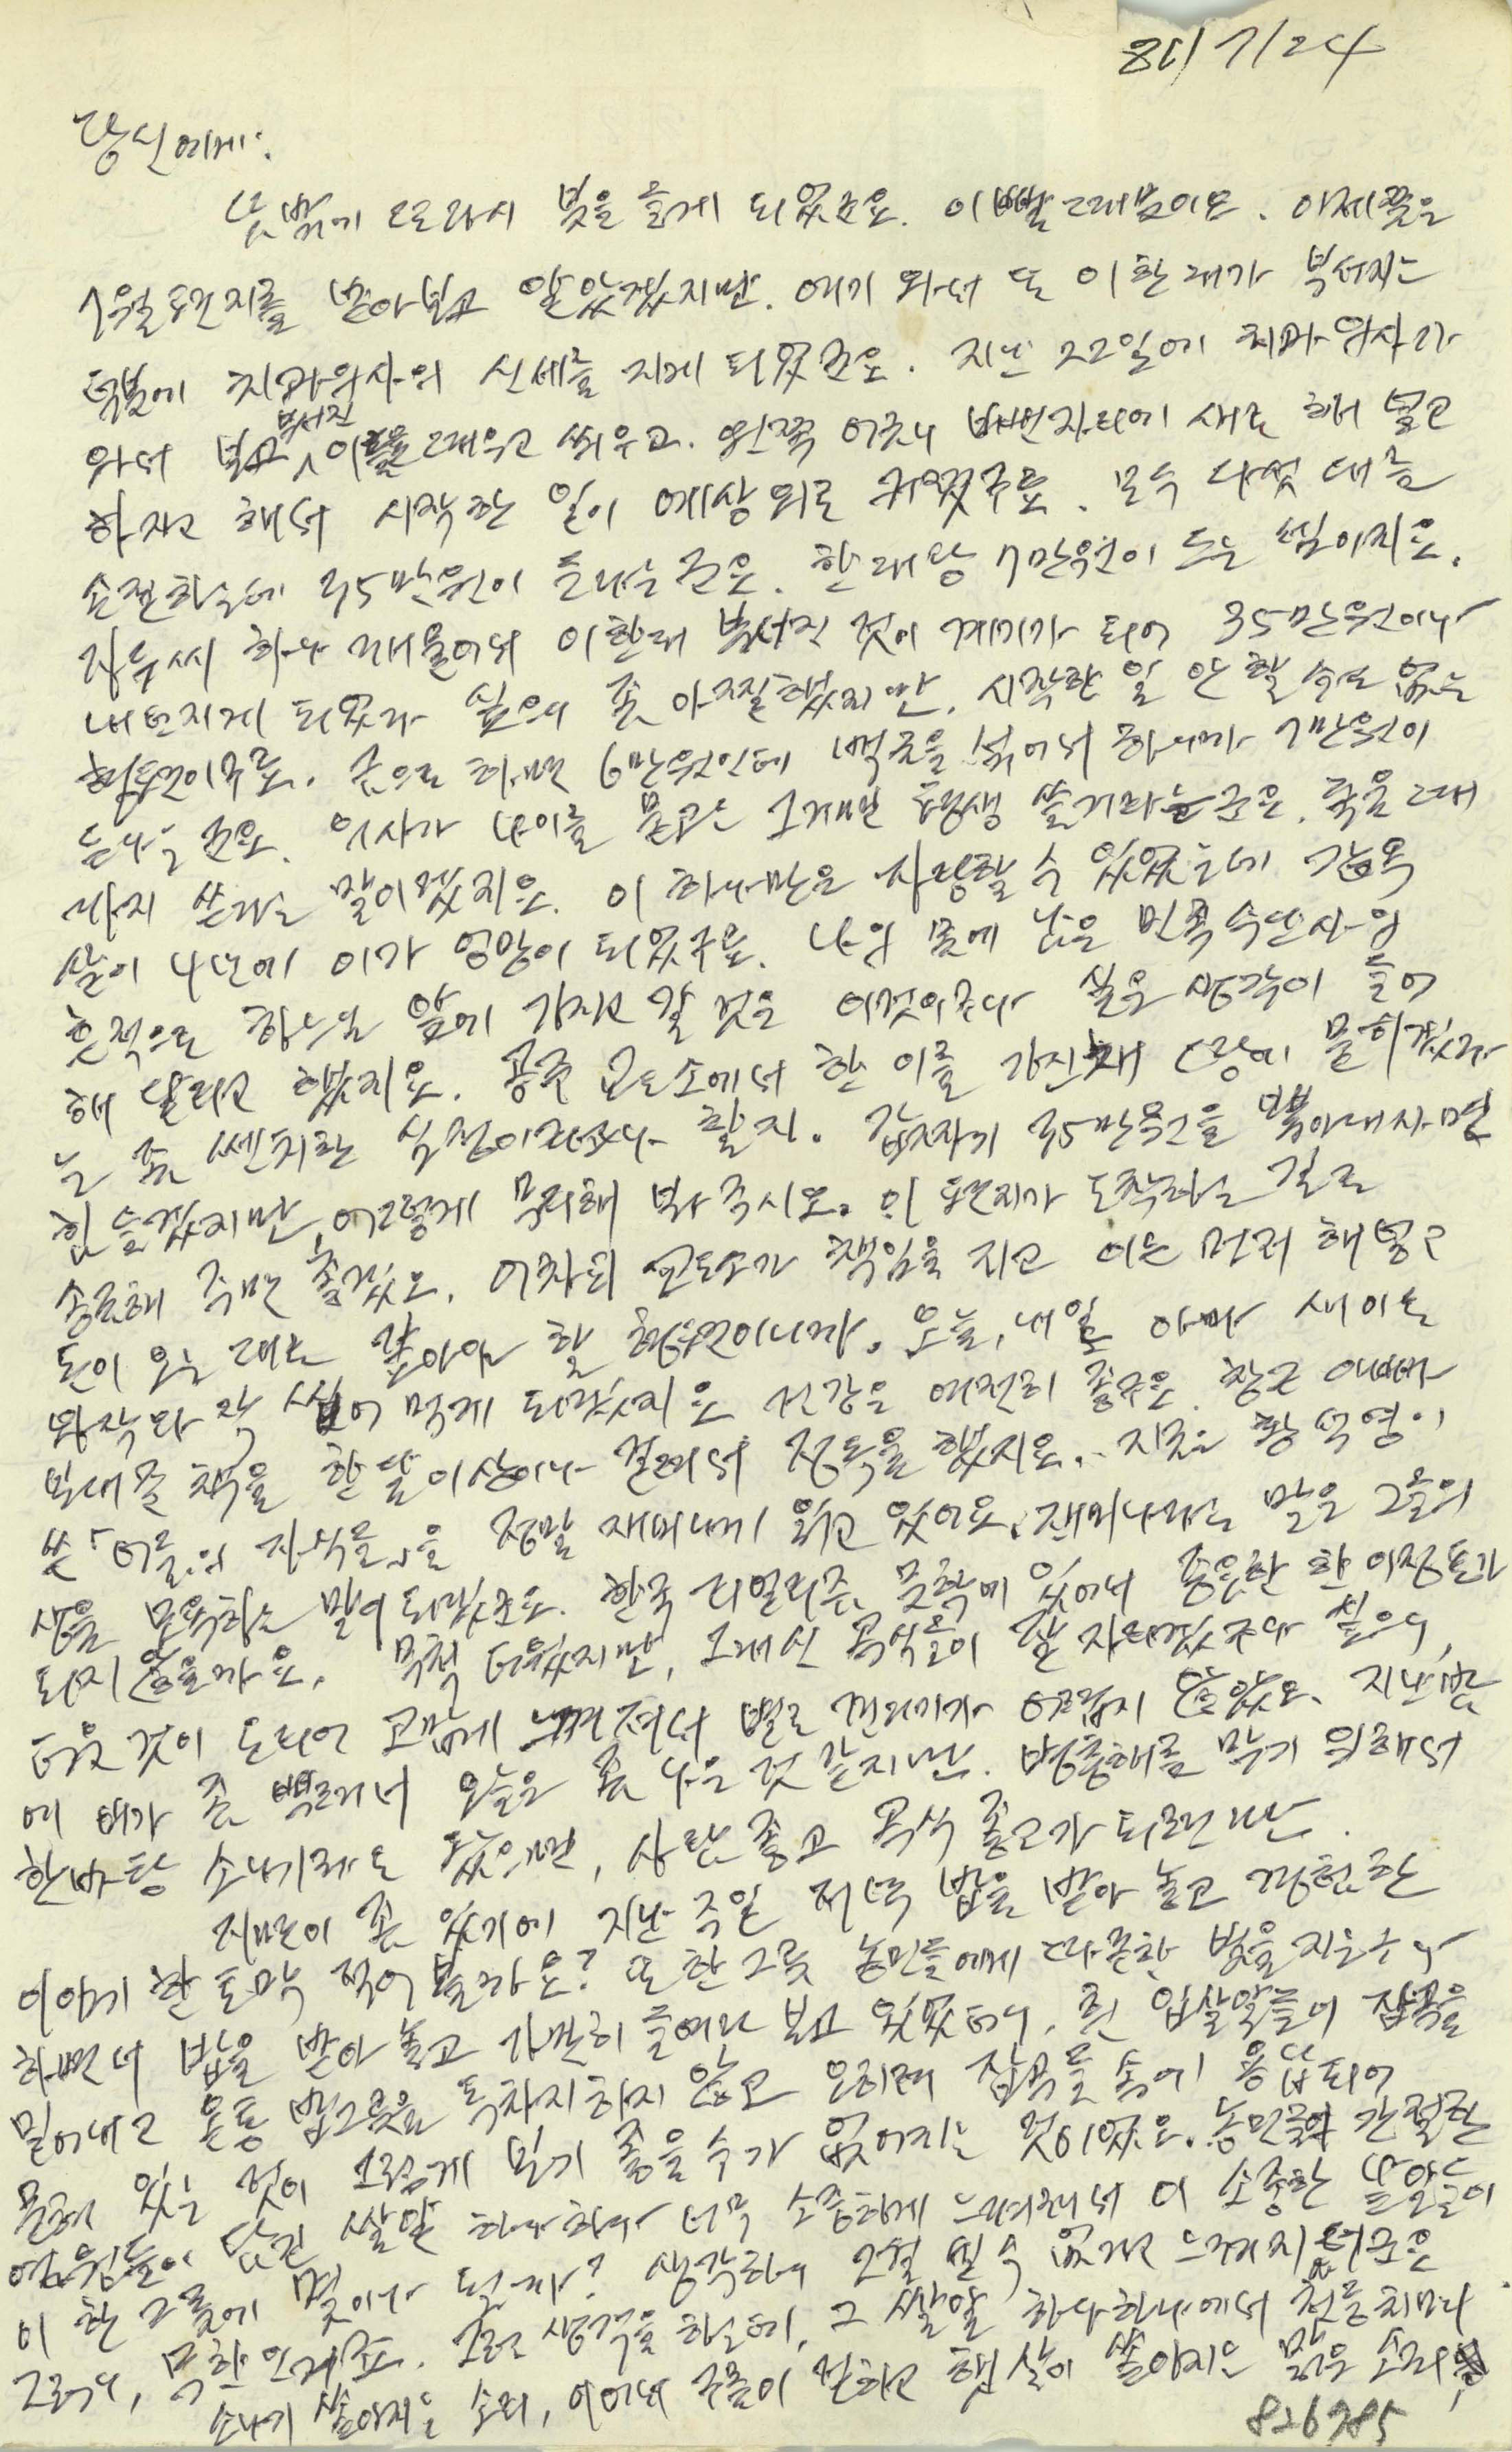 81/7/24
당신에게.
뜻밖에 또다시 붓을 들게 되었군요. 이빨 때문이오. 아제쯤은
7월 편지를 받아 보고 알았겠지만. 여기 와서 또 이 한 대가 부서지는
덕분에 치과의사의 신세를 지게 되었군요. 지난 22일에 치과 의사가
와서 보고 부서진 이를 때우고 씌우고. 왼쪽 어금니 빠진 자리에 새로 해 넣고
하자고 해서 시작한 일이 예상외로 커졌군요. 모두 다섯 대를
손질하는데 35만원이 든다는군요. 한 대당 7만원이 드는 셈이지요.
하나 깨물어서 이 한 대 부서진 것이 계기가 되어 35만원이나
내던지게 되었다 싶으니 좀 아찔했지만, 시작한 일 안 할 수도 없는
형편이군요. 금으로 하면 6만원인데 백금을 섞어서 하니까 7만원이
든다는군요. 의사가 나이를 묻고는 그거면 평생 쓸 거라는군요. 죽을 때
까지 쓴다는 말이겠지요. 이 하나만은 자랑할 수 있었는데 감옥
살이 4년에 이가 엉망이 되었군요. 나의 몸에 남은 민족 수난사의
흔적으로 하느님 앞에 가지고 갈 것은 이것이구나 싶은 생각이 들어
해 달라고 했지요. 공주 교도소에서 한 이를 가진 채 땅에 묻히겠다
는 좀 쎈치한 심정이라고나 할지. 갑자기 35만원을 뽑아내자면
힘들겠지만, 어떻게 무리해 봐 주시오. 이 편지가 도착하는 길로
송금해 주면 좋겠소. 어차피 교도소가 책임을 지고 이는 먼저 해 넣고
돈이 오는 대로 갚아야 할 형편이니까. 오늘, 내일 아마 새 이로
와작와작 씹어 먹게 되겠지요. 건강은 여전히 좋군요. 창근 애비가
보내준 책을 한 달 이상이나 걸려서 정독을 했지요. 지금은 황석영이
쓴 「어둠의 자식들」을 정말 재미나게 읽고 있어요. 재미나다는 말은 그들의
삶을 모욕하는 말이 되겠군요. 한국 리얼리즘 문학에 있어서 중요한 한 이정표가
되지 않을까요. 무척 더웠지만, 그대신 곡식들이 잘 자라겠구나 싶으니,
더운 것이 도리어 고맙게 느껴져서 별로 견디기가 어렵지 않았소. 지난밤
에 비가 좀 뿌려서 오늘은 좀 나은 것 같지만. 병충해를 막기 위해서
한바탕 소나기라도 왔으면, 사람 좋고 곡식 좋고가 되련만.
지면이 좀 있기에 지난 주일 저녁 밥을 받아 놓고 경험한
이야기 한 토막 적어 볼까요? 또 한 그릇 농민들에게 따끈한 빚을 지는구나
하면서 밥을 받아 놓고 가만히 들여다 보고 있었더니, 흰 입쌀알들이 잡곡을
밀어내고 온통 밥그릇을 독차지하지 않고 오히려 잡곡들 속에 용납되어
몰려 있는 것이 그렇게 보기 좋을 수가 없어지는 것이었소. 농민들의 간절한
염원들이 담긴 쌀알 하나하나 너무 소중하게 느껴져서 이 소중한 낟알들이
이 한 그릇에 몇이나 될까? 생각하니 그걸 셀 수 없다고 느껴지더군요.
그러니, 무한인 거죠. 그런 생각을 하는데, 그 쌀알 하나하나에서 천둥 치며
소나기 쏟아지는 소리, 이어서 구름이 걷히고 햇살이 쏟아지는 맑은 소리
826785